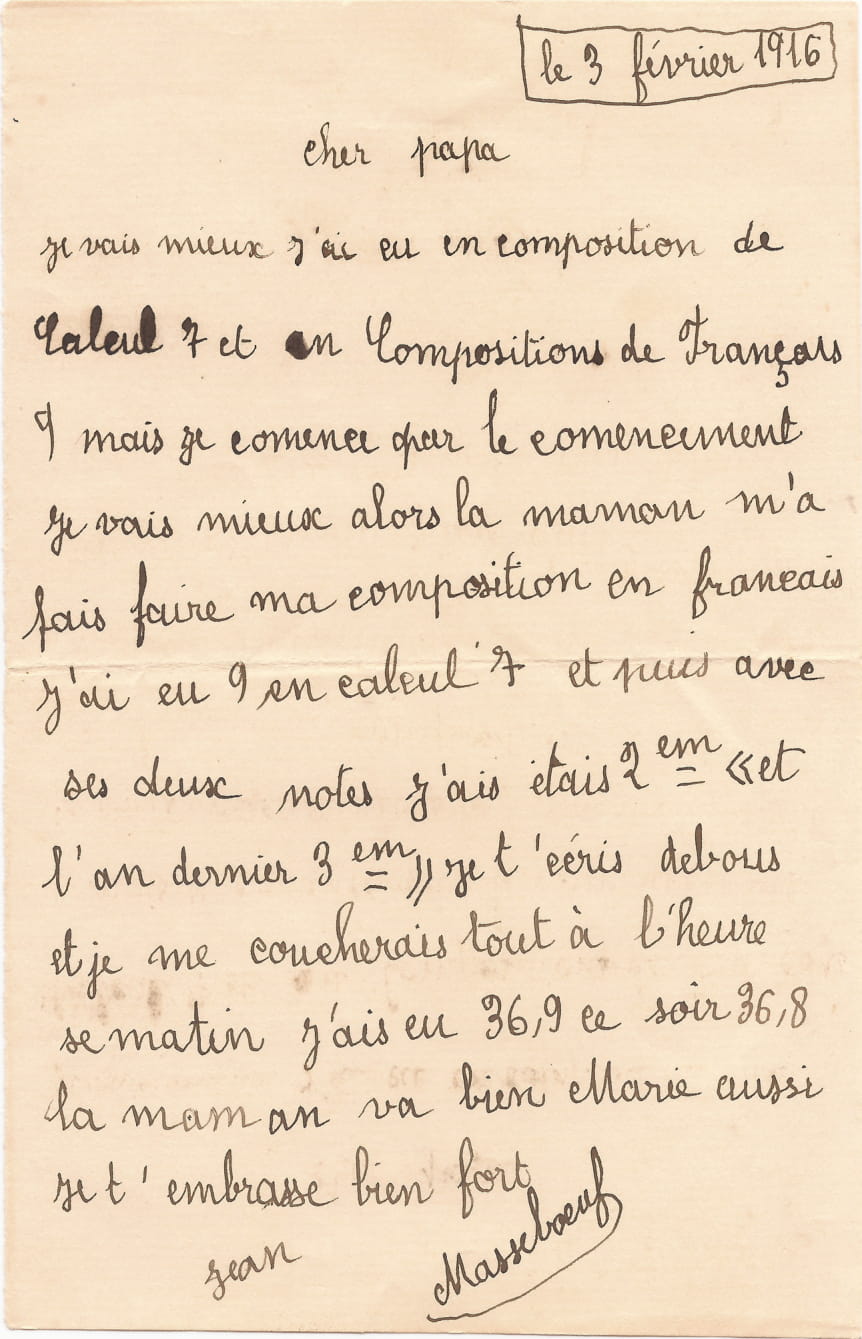 le 3 février 1916
cher papa
je vais mieux j'ai eu en composition de
Calcul 7 et en Compositions de Français
9 mais je comence par le comencement
je vais mieux alors la maman m'a
fais faire ma composition en francais
j'ai eu 9 en calcul 7 et puis avec
ses deux notes j'ais étais 2 em «et
l'an dernier 3 em» je t'écris debous
et je me coucherais tout à l'heure
se matin j'ais eu 36,9 ce soir 36,8
la maman va bien Marie aussi
je t'embrasse bien fort
jean Masseboeuf